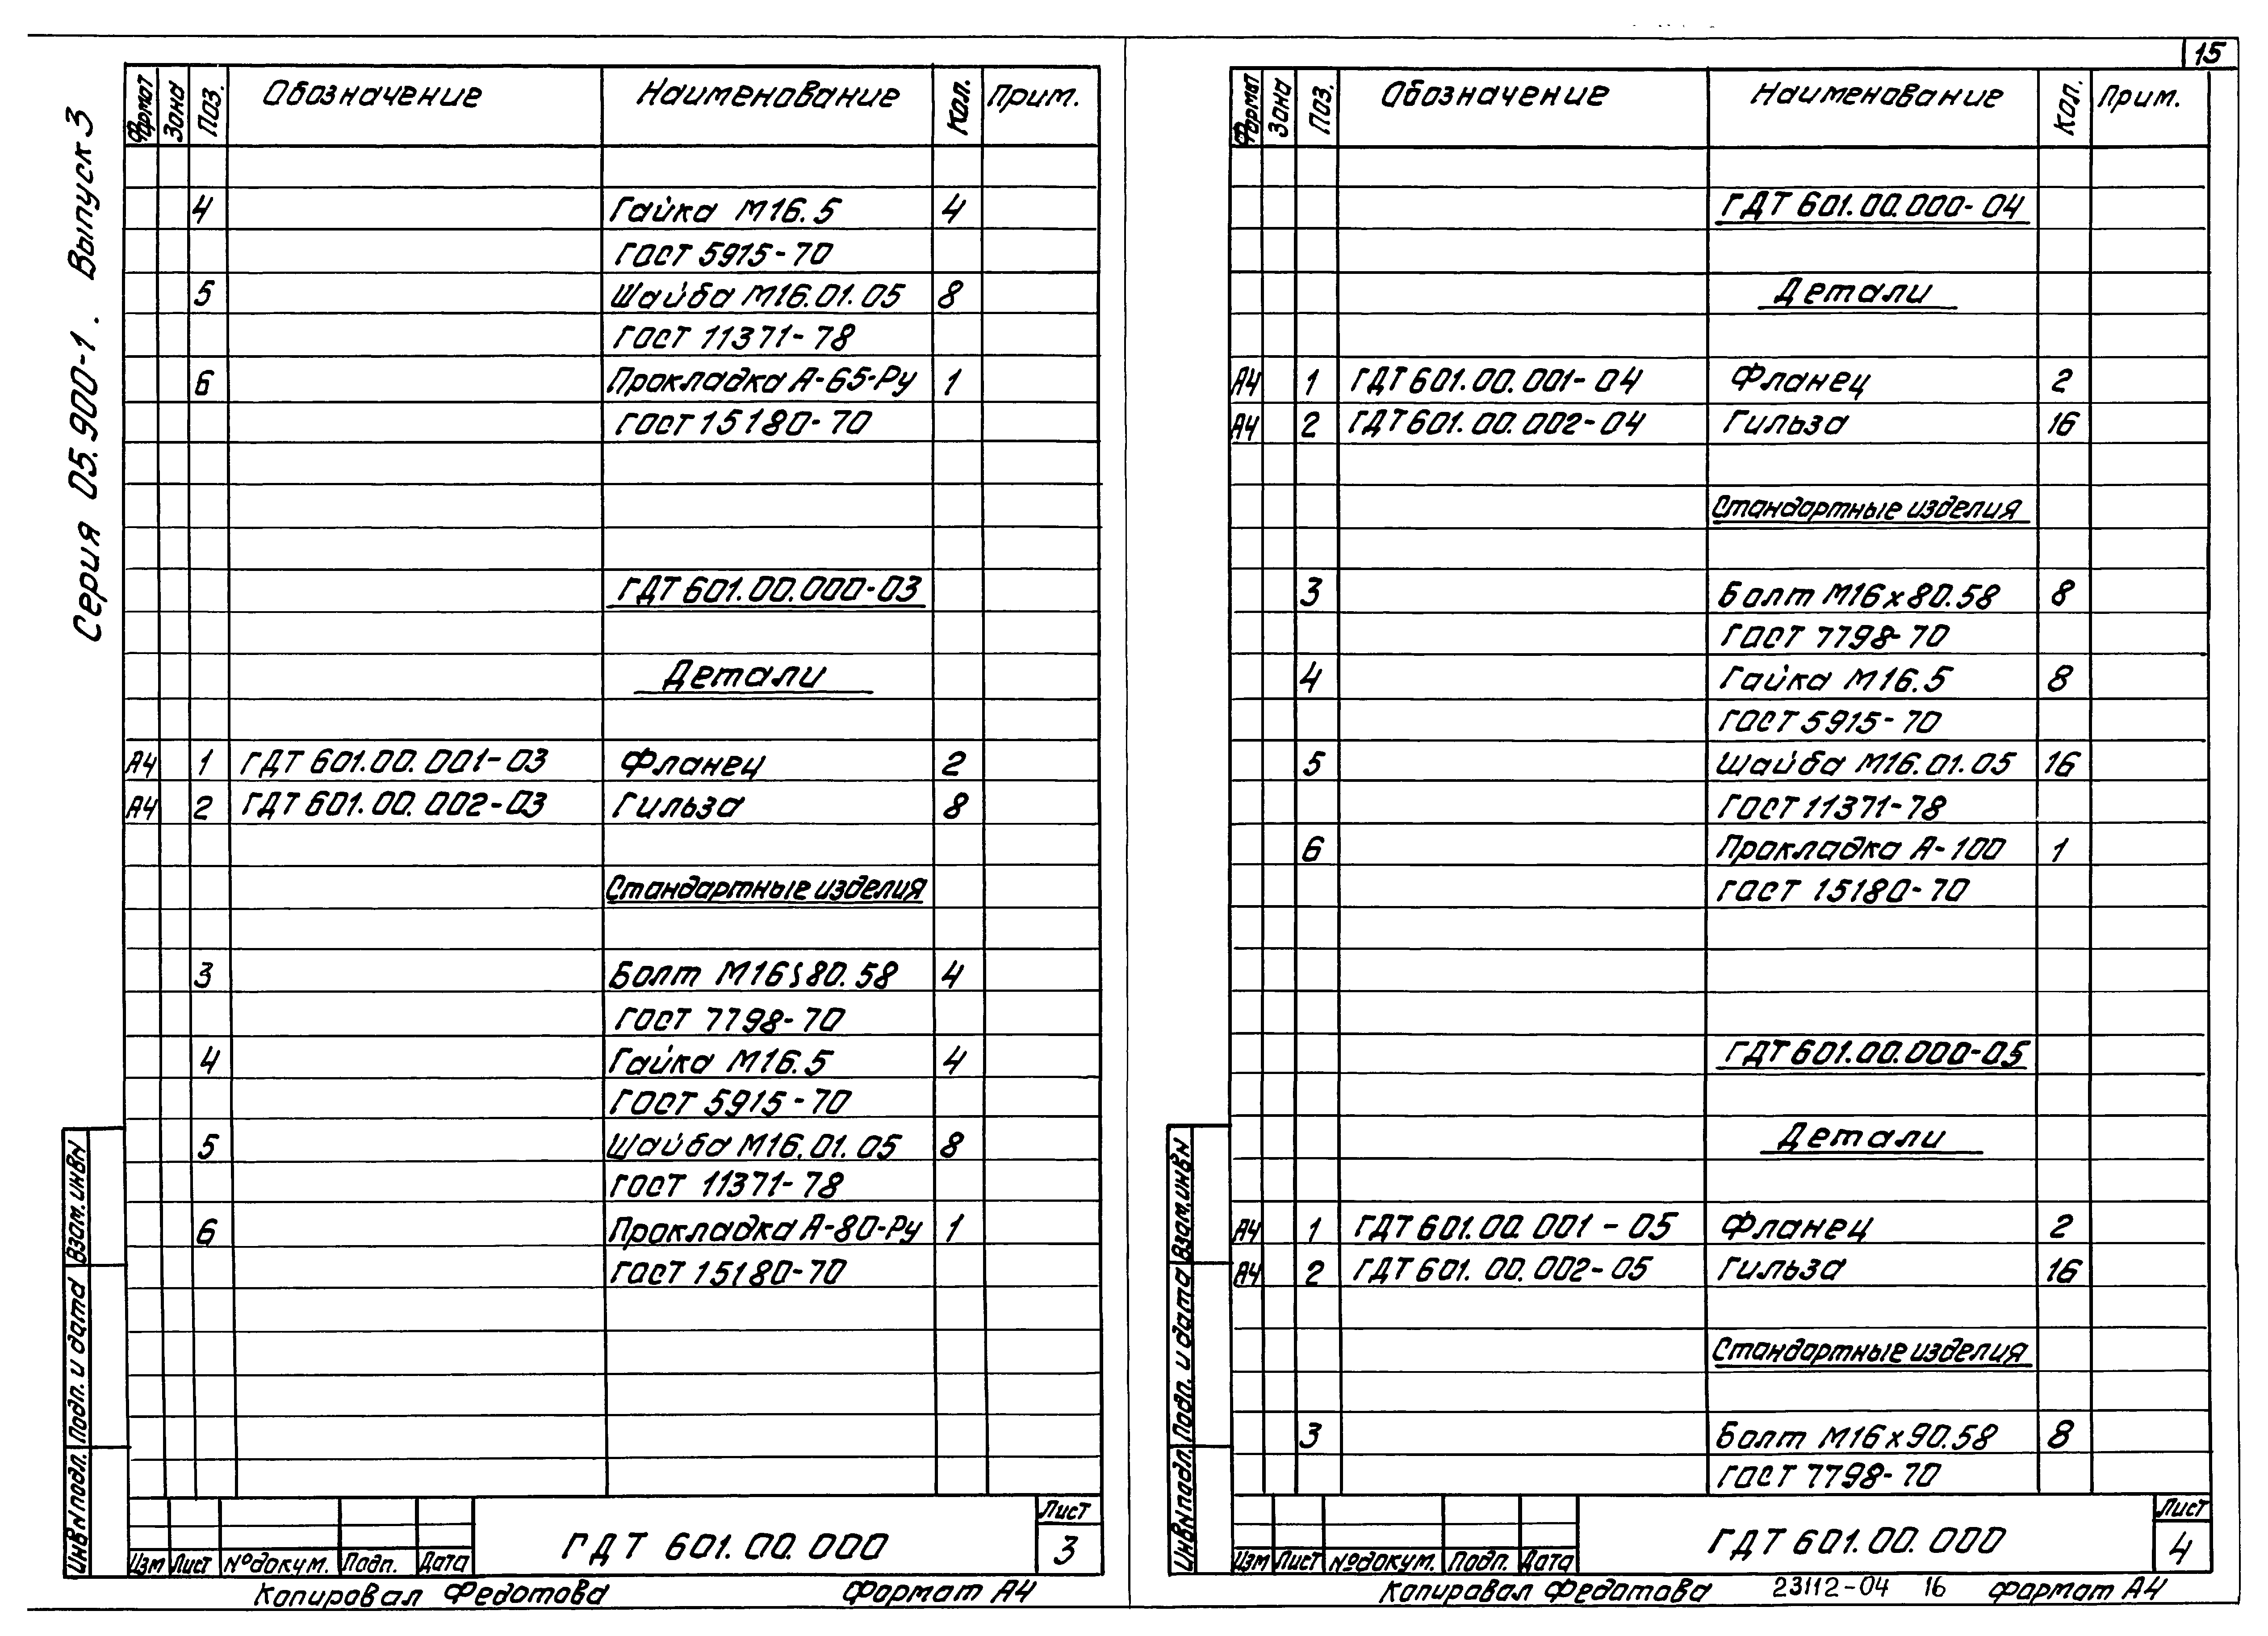 15
Серия 05.900-1. Выпуск 3
Формат Зона Поз. Обозначение Наименование Кол. Прим.
4 Гайка М16.5 4
ГОСТ 5915-70
5 Шайба М16.01.05 8
ГОСТ 11371-78
6 Прокладка А-65-Ру 1
ГОСТ 15180-70
ГДТ 601.00.000-03
Детали
А4 1 ГДТ 601.00.001-03 Фланец 2
А4 2 ГДТ 601.00.002-03 Гильза 8
Стандартные изделия
3 Болт М16S80.58 4
ГОСТ 7798-70
4 Гайка М16.5 4
ГОСТ 5915-70
5 Шайба М16.01.05 8
ГОСТ 11371-78
6 Прокладка А-80-Ру 1
ГОСТ 15180-70
Инв N подл. Подп. и дата Взам. инв N
Изм Лист № докум. Подп. Дата
ГДТ 601.00.000
Лист
3
Копировал Федотова Формат А4
Формат Зона Поз. Обозначение Наименование Кол. Прим.
ГДТ 601.00.000-04
Детали
А4 1 ГДТ 601.00.001-04 Фланец 2
А4 2 ГДТ 601.00.002-04 Гильза 16
Стандартные изделия
3 Болт М16х80.58 8
ГОСТ 7798-70
4 Гайка М16.5 8
ГОСТ 5915-70
5 Шайба М16.01.05 16
ГОСТ 11371-78
6 Прокладка А-100 1
ГОСТ 15180-70
ГДТ 601.00.000-05
Детали
А4 1 ГДТ 601.00.001-05 Фланец 2
А4 2 ГДТ 601.00.002-05 Гильза 16
Стандартные изделия
3 Болт М16х90.58 8
ГОСТ 7798-70
Инв N подл. Подп. и дата Взам. инв N
Изм Лист № докум. Подп. Дата
ГДТ 601.00.000
Лист
4
Копировал Федотова 23112-04 16 Формат А4